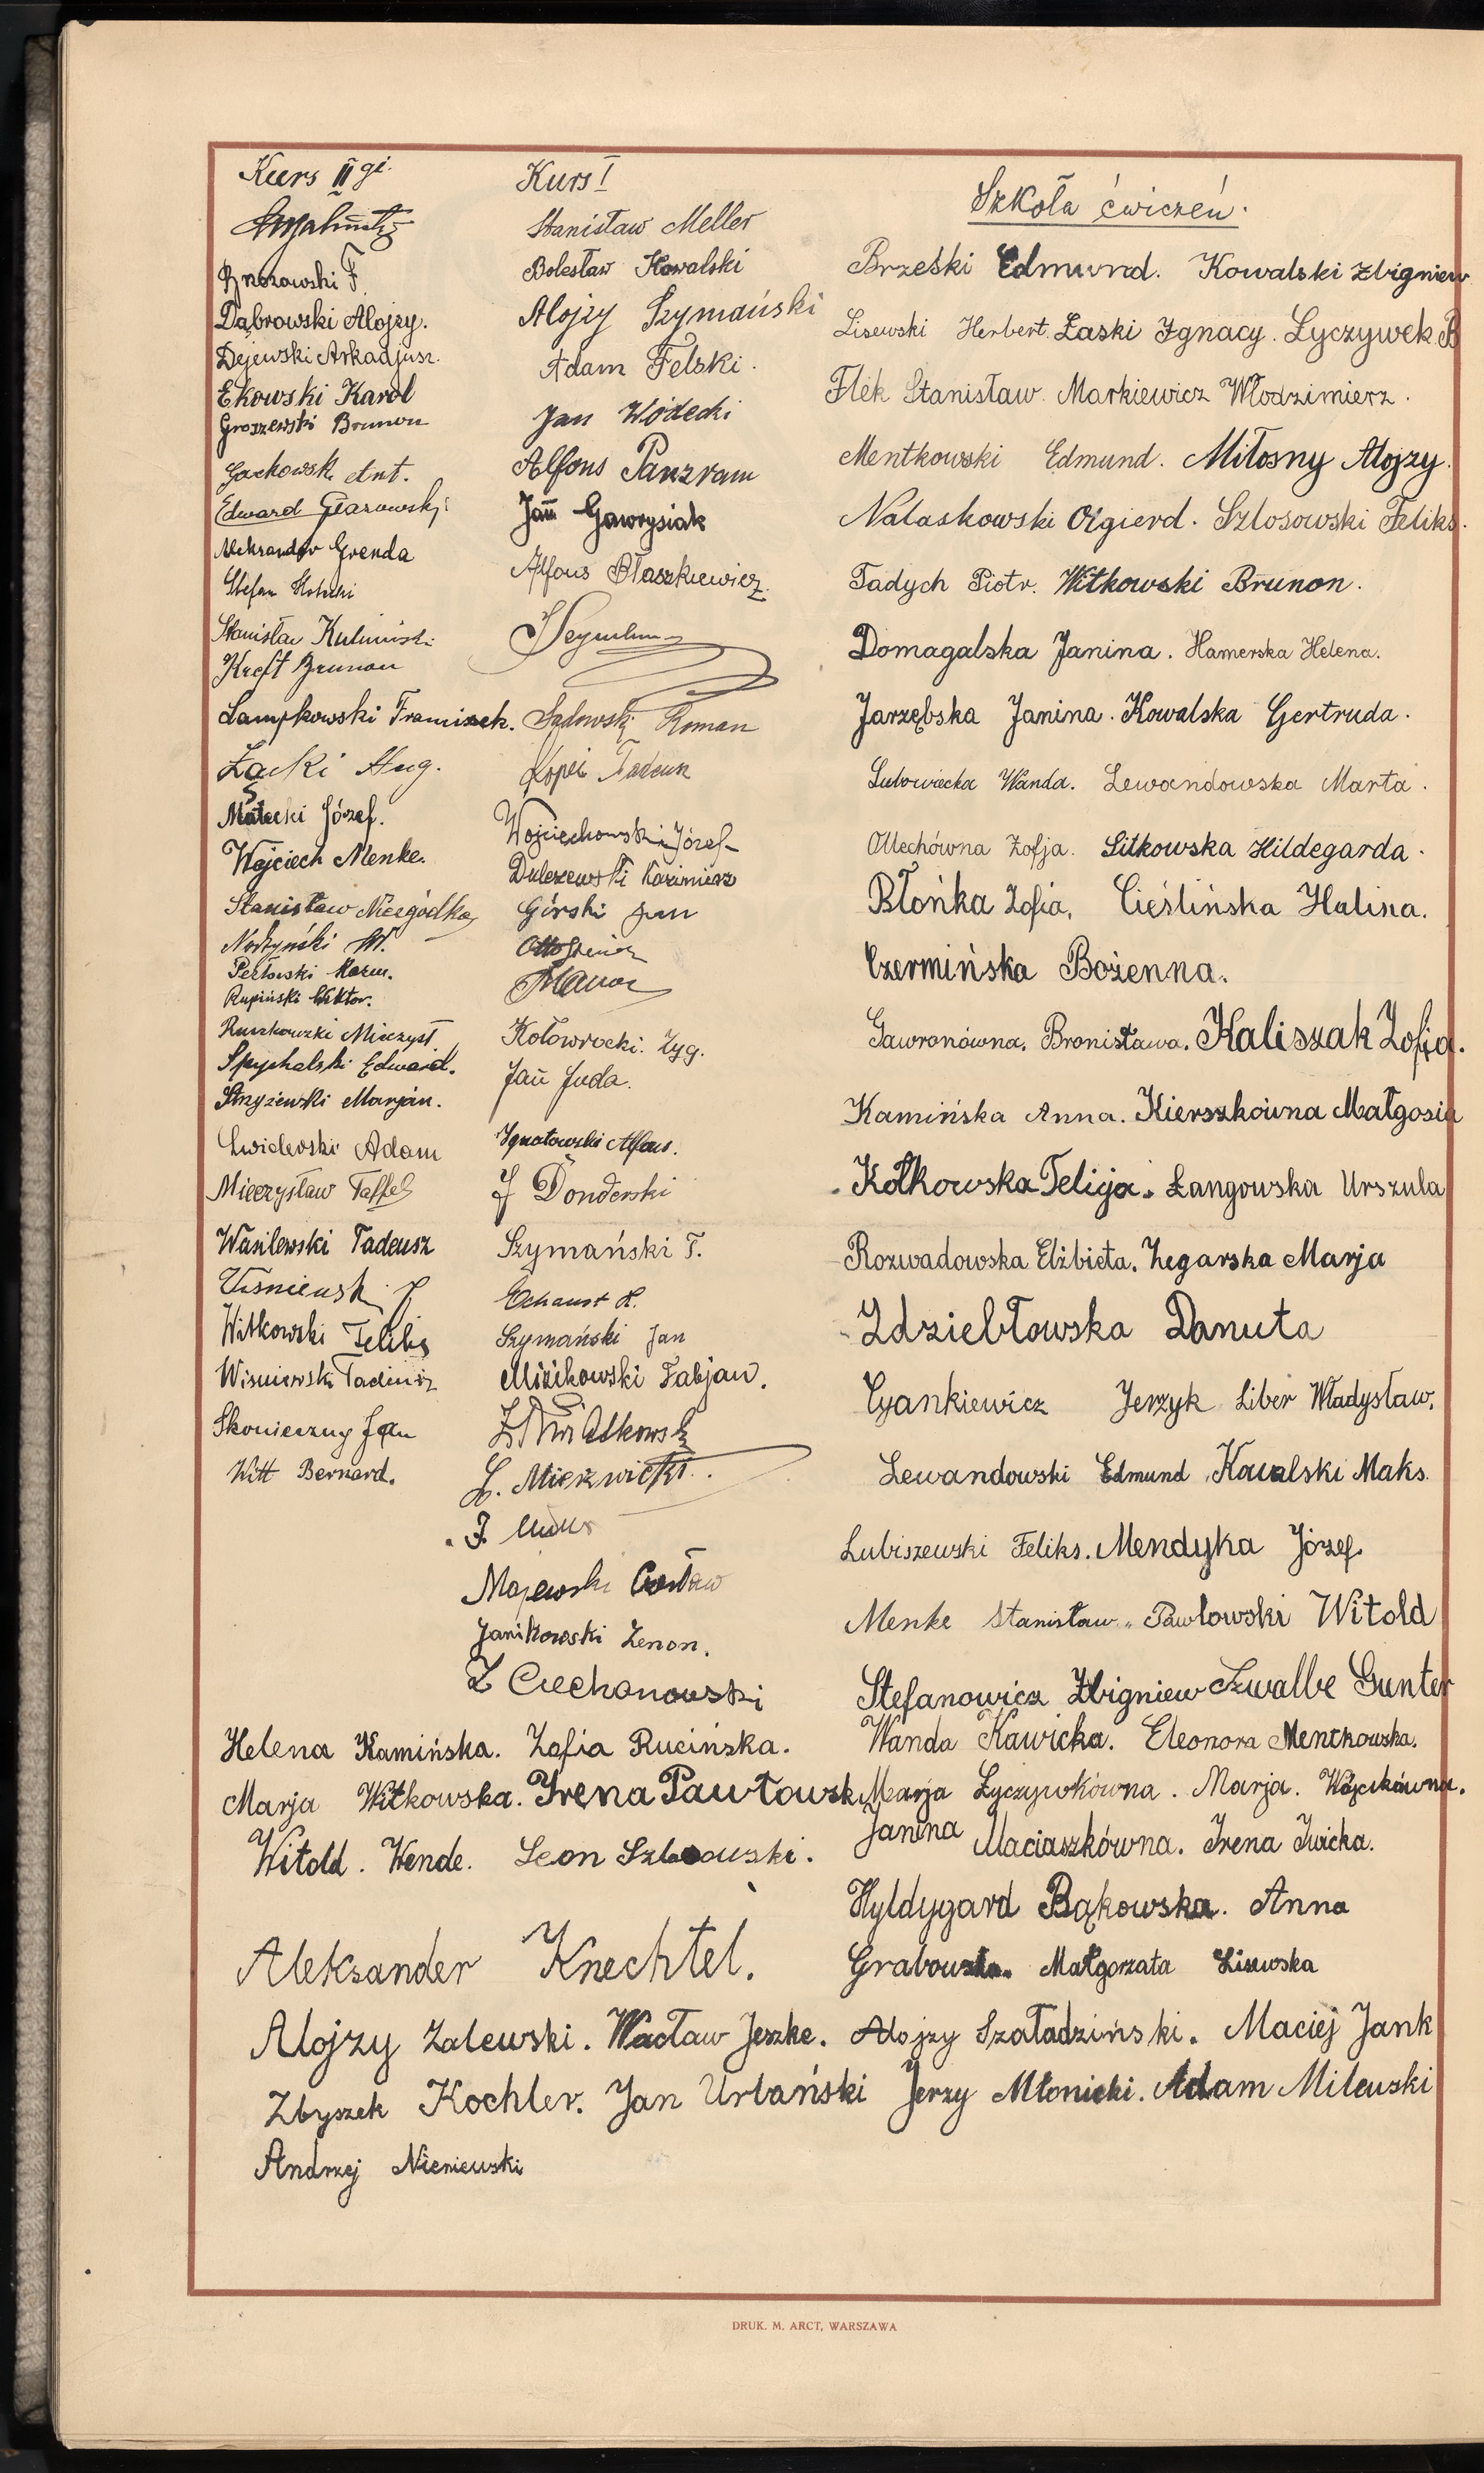 Kurs II gi.
Brzozowski F.
Dąbrowski Alojzy.
Dejewski Arkadjusz.
Ekowski Karol
Groszewski Brunon
Gackowski Ant.
Edward Glazowski
Aleksander Grenda
Stefan
Stanisław Kulwiński
Kreft Brunon
Lampkowski Franciszek.
Łącki Aug.
Małecki Józef.
Wojciech Menke.
Stanisław Niezgódka
Nodzyński W.
Perłowski Kazm.
Rupiński Wiktor.
Ruszkowski Mieczysł.
Spychalski Edward.
Stryżewski Marjan.
Adam
Mieczysław Taffel
Wasilewski Tadeusz
Wiśniewski J
Witkowski Feliks
Wiśniewski Tadeusz
Skonieczny Jan
Witt Bernard.
Kurs I
Stanisław Meller
Bolesław Kowalski
Alojzy Szymański
Adam Felski.
Jan Wódecki
Alfons Panzram
Jan Gawrysiak
Alfons Błaszkiewicz.
Sądowski Roman
Tadeusz
Wojciechowski Józef
Dulczewski Kazimierz
Górski Jan
Otto
Kołowrocki. Zyg.
Jan Juda.
Ignatowski Alfons.
J Donderski
Szymański T.
Echaust H.
Szymański Jan
Miżikowski Fabjan.
Z. Kwiatkowski
L. Mierzwicki.
Majewski Czesław
Janikowski Zenon.
Z Ciechanowski
Szkoła ćwiczeń.
Brzeski Edmund. Kowalski Zbigniew
Lisewski Herbert. Łaski Ignacy. Łyczywek B
Flek Stanisław. Markiewicz Włodzimierz.
Mentkowski Edmund. Miłosny Alojzy.
Nalaskowski Olgierd. Szlosowski Feliks.
Tadych Piotr. Witkowski Brunon.
Domagalska Janina. Hamerska Helena.
Jarzębska Janina. Kowalska Gertruda.
Lubowiecka Wanda. Lewandowska Marta.
Ollechówna Zofja. Sitkowska Hildegarda.
Błońka Zofia, Cieślińska Halina.
Czermińska Bożenna.
Gawronówna, Bronisława. Kaliszak Zofia.
Kamińska Anna. Kierszkówna Małgosia
Kołkowska Felicja. Łangowska Urszula
Rozwadowska Elżbieta. Zegarska Marja
Zdziebłowska Danuta
Cyankiewicz Jerzyk Liber Władysław.
Lewandowski Edmund, Kowalski Maks.
Lubiszewski Feliks. Mendyka Józef.
Menke Stanisław. Pawłowski Witold
Stefanowicz Zbigniew Szwalbe Gunter
Wanda Kawicka. Eleonora Mentkowska.
Marja Łyczywkówna. Marja. Wójcikówna.
Janina Maciaszkówna. Irena Iwicka.
Hyldygard Bąkowska. Anna
Grabowska. Małgorzata Lisewska
Helena Kamińska. Zofia Rucińska.
Marja Witkowska. Irena Pawłowsk
Witold. Wende. Leon Szlosowski.
Aleksander Knechtel.
Alojzy Zalewski. Wacław Jeszke. Alojzy Szaładziński. Maciej Jank
Zbyszek Kochler. Jan Urbański Jerzy Młonicki. Adam Milewski
Andrzej Nieniewski
DRUK. M. ARCT, WARSZAWA